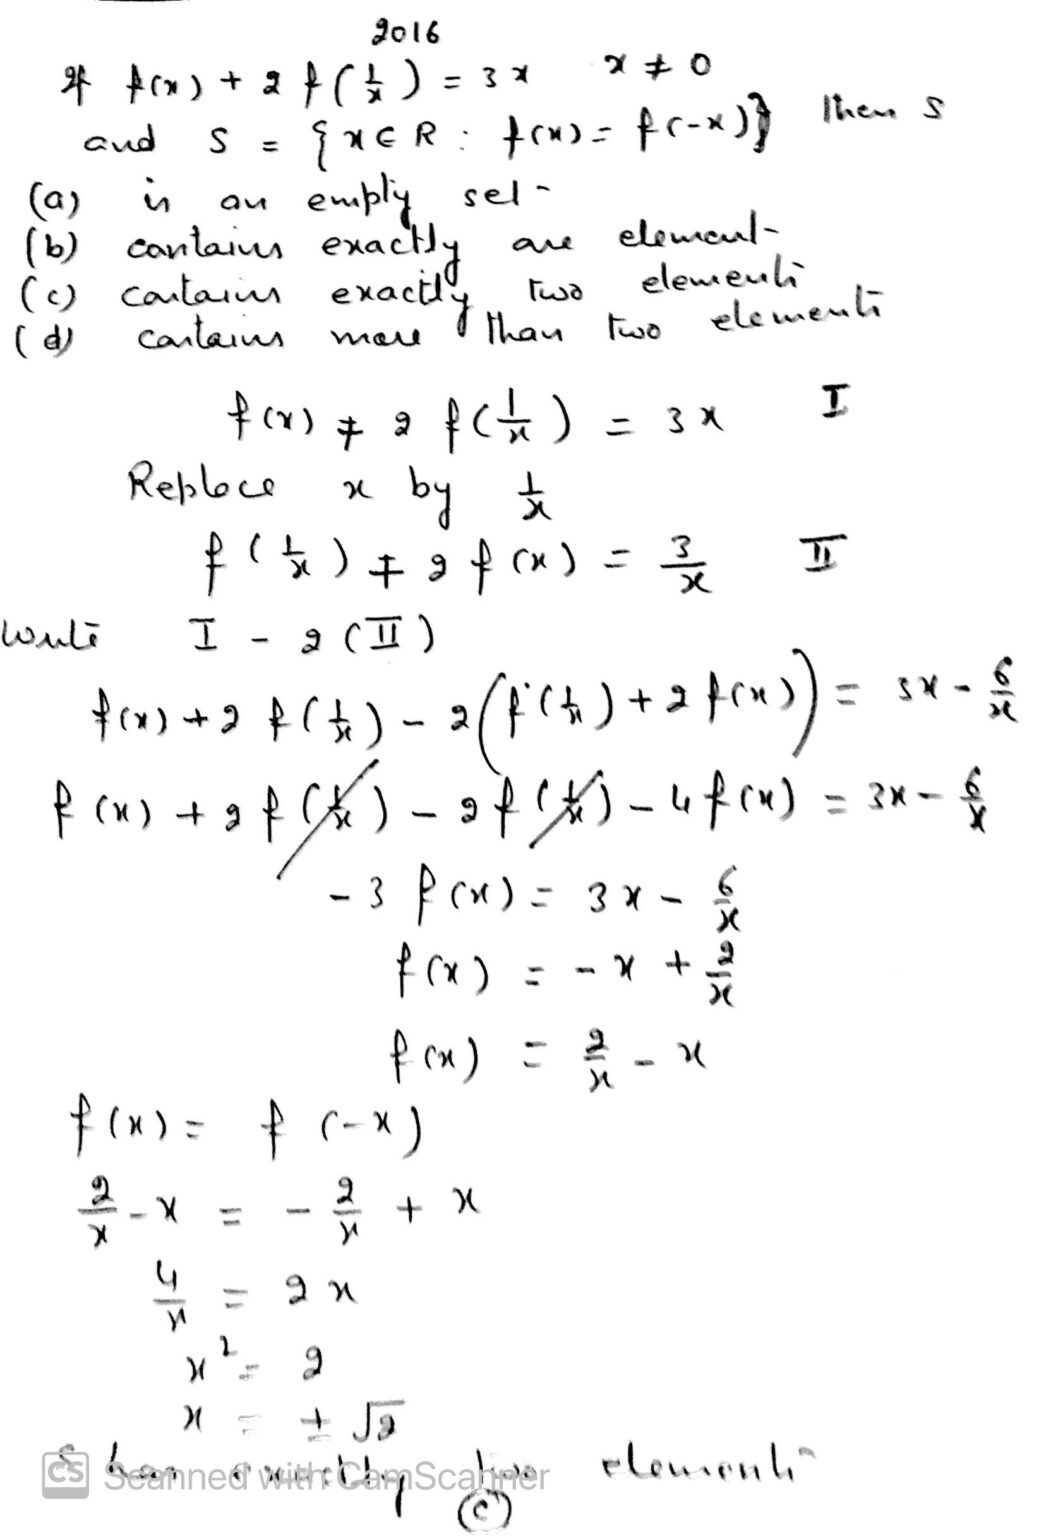 2016
If f(x) + 2 f(1/x) = 3x x ≠ 0
and S = {x ∈ R : f(x) = f(-x)} Then S
(a) is an empty set
(b) contains exactly one element
(c) contains exactly two elements
(d) contains more than two elements
f(x) + 2 f(1/x) = 3x I
Replace x by 1/x
f(1/x) + 2 f(x) = 3/x II
Write I - 2(II)
f(x) + 2 f(1/x) - 2(f(1/x) + 2 f(x)) = 3x - 6/x
f(x) + 2 f(1/x) - 2 f(1/x) - 4 f(x) = 3x - 6/x
-3 f(x) = 3x - 6/x
f(x) = -x + 2/x
f(x) = 2/x - x
f(x) = f(-x)
2/x - x = -2/x + x
4/x = 2x
x² = 2
x = ± √2
S has exactly two elements
CS Scanned with CamScanner
(c)